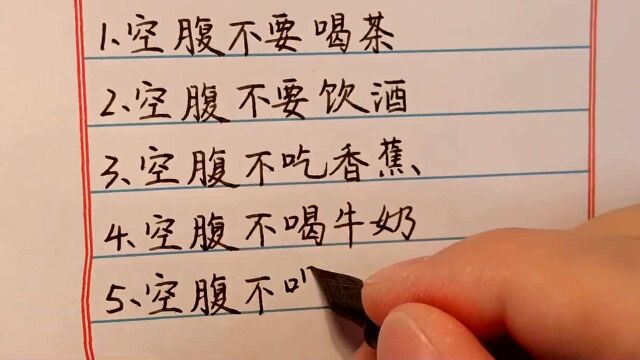 1.空腹不要喝茶
2、空腹不要饮酒
3、空腹不吃香蕉
4.空腹不喝牛奶
5、空腹不